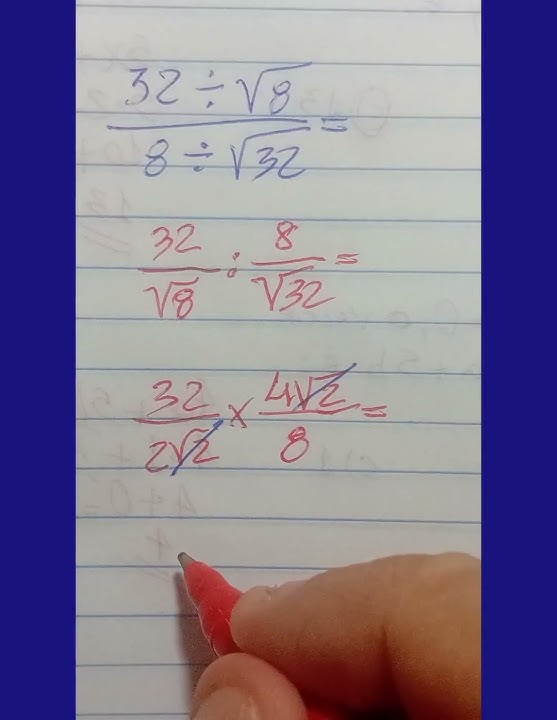 32 ÷ √8
8 ÷ √32 =
32/√8 : 8/√32 =
32/2√2 × 4√2/8 =